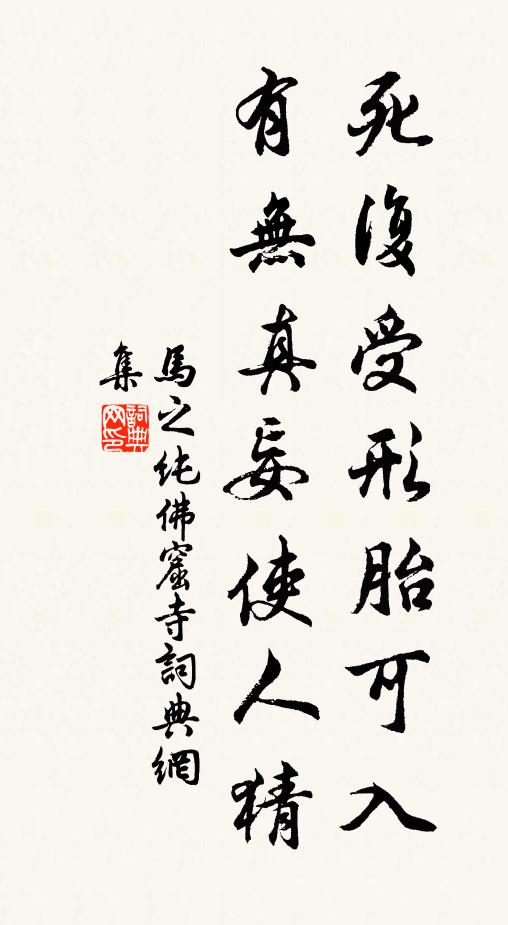 死復受形胎可入
有無真妄使人猜
馬之純佛窟寺詞典網
集
詞典网印